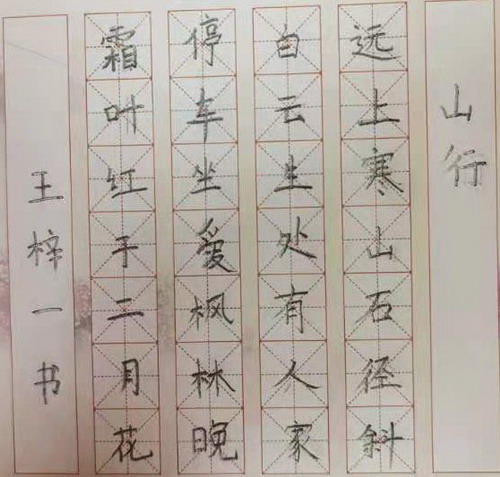 山行
远上寒山石径斜
白云生处有人家
停车坐爱枫林晚
霜叶红于二月花
王梓一书